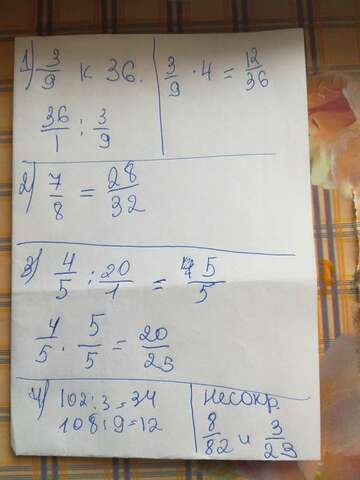 1) 3/9 к 36.
36/1 : 3/9
3/9 · 4 = 12/36
2) 7/8 = 28/32
3) 4/5 : 20/1 = 45/5
4/5 · 5/5 = 20/25
4) 102:3=34
108:9=12
несокр.
8/82 и 3/23